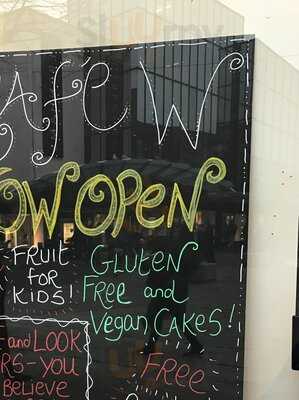 CAFE W
OW OPEN
FRUIT
FOR
KIDS!
GLUTEN
FREE and
VEGAN CAKES!
-and LOOK
RS-YOU
BELIEVE
FREE